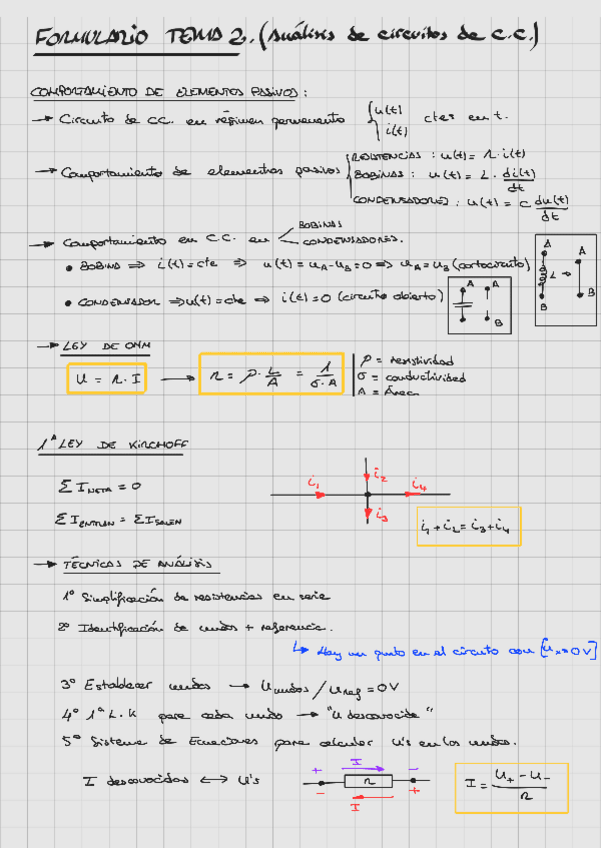 FORMULARIO TEMA 2. (Análisis de circuitos de C.C.)
COMPORTAMIENTO DE ELEMENTOS PASIVOS:
→ Circuito de C.C. en régimen permanente { u(t) i(t) ctes en t.
→ Comportamiento de elementos pasivos
RESISTENCIAS : u(t) = R · i(t)
BOBINAS : u(t) = L · di(t)/dt
CONDENSADORES : u(t) = C du(t)/dt
→ Comportamiento en C.C. en
BOBINAS
CONDENSADORES.
• BOBINA ⇒ i(t) = cte ⇒ u(t) = uA - uB = 0 ⇒ uA = uB (cortocircuito)
A A
L →
B B
• CONDENSADOR ⇒ u(t) = cte ⇒ i(t) = 0 (circuito abierto)
A A
B
→ LEY DE OHM
U = R · I → R = ρ · L/A = 1/(σ · A)
ρ = resistividad
σ = conductividad
A = Área
1ª LEY DE KIRCHOFF
Σ I NETA = 0
Σ I ENTRAN = Σ I SALEN
i₁ i₂ i₄ i₃
i₁ + i₂ = i₃ + i₄
→ TÉCNICAS DE ANÁLISIS
1º Simplificación de resistencias en serie
2º Identificación de nudos + referencia.
↳ Hay un punto en el circuito con [Ux = 0V]
3º Establecer nudos → U nudos / U ref = 0V
4º 1ª L.K para cada nudo → "U desconocida"
5º Sistema de Ecuaciones para calcular U's en los nudos.
I desconocidas ↔ U's
+ I -
R
- I +
I = (U₊ - U₋)/R